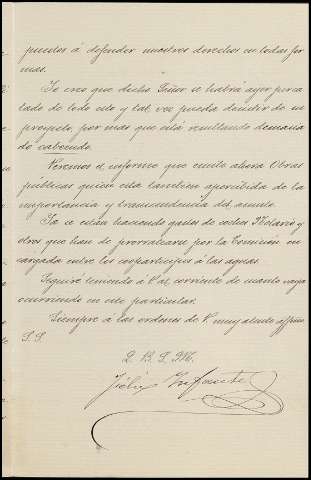 puestos á defender nuestros derechos en todas for
mas.
Yo creo que dicho Señor se habrá ayer perca
tado de todo esto y tal vez pueda desistir de su
proyecto por mas que está resultando demasia
do cabecudo.
Veremos el informe que emite ahora Obras
públicas quien está tambien apercibida de la
importancia y transcendencia del asunto.
Ya se están haciendo gastos de coches Notario y
otros que han de prorratearse por la Comisión en
cargada entre los copartícipes á las aguas.
Seguiré teniendo á V. al corriente de cuanto vaya
ocurriendo en este particular.
Siempre á las ordenes de V. muy atento affmo
S. S.
Q. B. S. M.
Félix